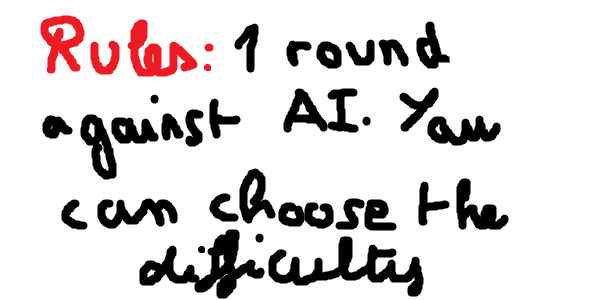 Rules: 1 round
against AI. You
can choose the
difficulty